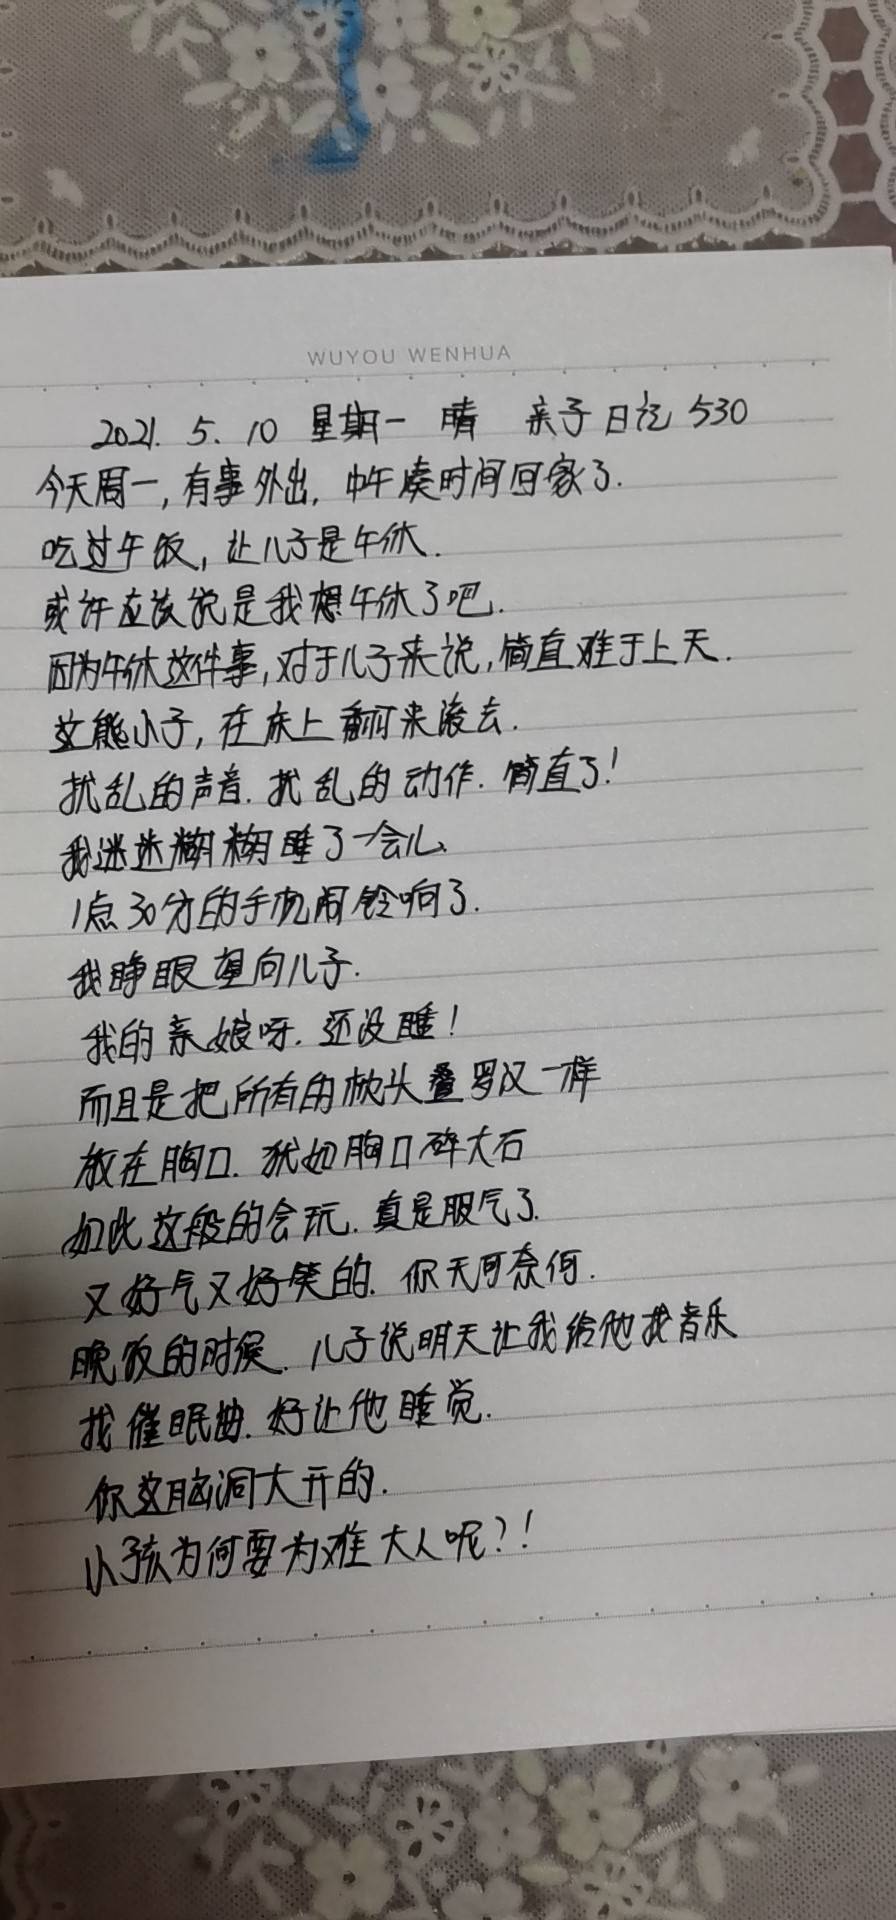 WUYOU WENHUA
2021. 5. 10 星期一 晴 亲子日记 530
今天周一,有事外出,中午凑时间回家了.
吃过午饭,让儿子是午休.
或许应该说是我想午休了吧.
因为午休这件事,对于儿子来说,简直难于上天.
这熊小子,在床上翻来滚去.
扰乱的声音.扰乱的动作.简直了!
我迷迷糊糊睡了一会儿、
1点30分的手机闹铃响了.
我睁眼望向儿子.
我的亲娘呀.还没睡!
而且是把所有的枕头叠罗汉一样
放在胸口.犹如胸口碎大石
如此这般的会玩.真是服气了.
又好气又好笑的.你天可奈何.
晚饭的时候.儿子说明天让我给他找音乐
找催眠曲.好让他睡觉.
你这脑洞大开的.
小孩为何要为难大人呢?!